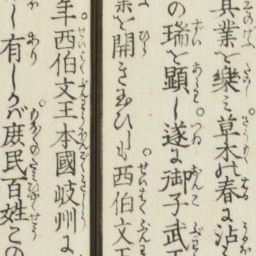 其業を樂ミ草木の春に沾
の瑞を顕し遂に御子武王
業を開き玉ひしも西伯文王
年西伯文王本國岐州に
有しかバ庶民百姓この